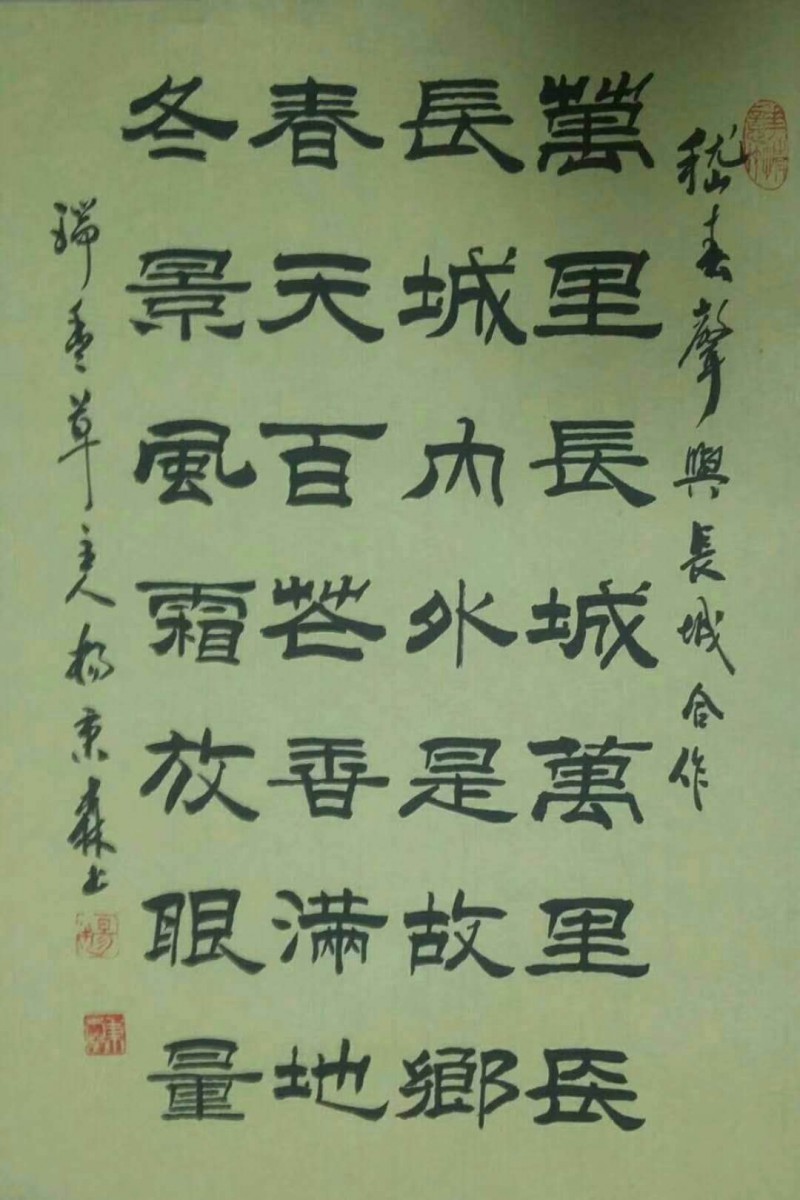 嵇春聲與長城合作
萬里長城萬里長
長城內外是故鄉
春天百花香滿地
冬景風霜放眼量
瑞香草主人楊秉森書